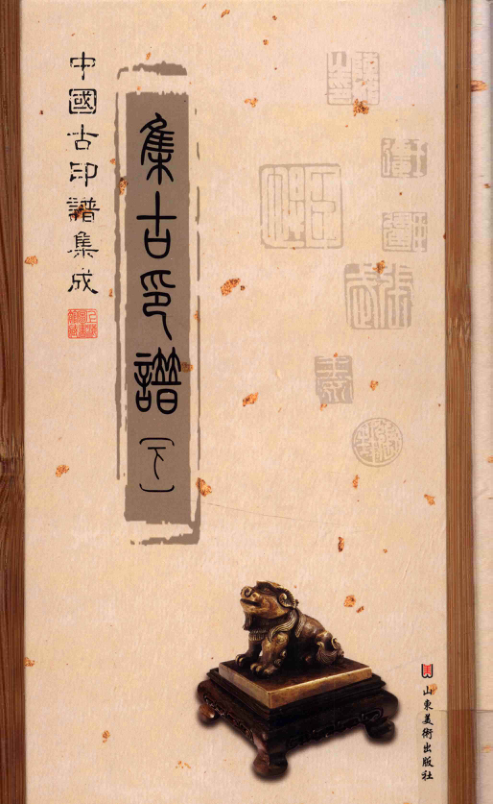 中國古印譜集成
集古印譜〔下〕
山東美術出版社